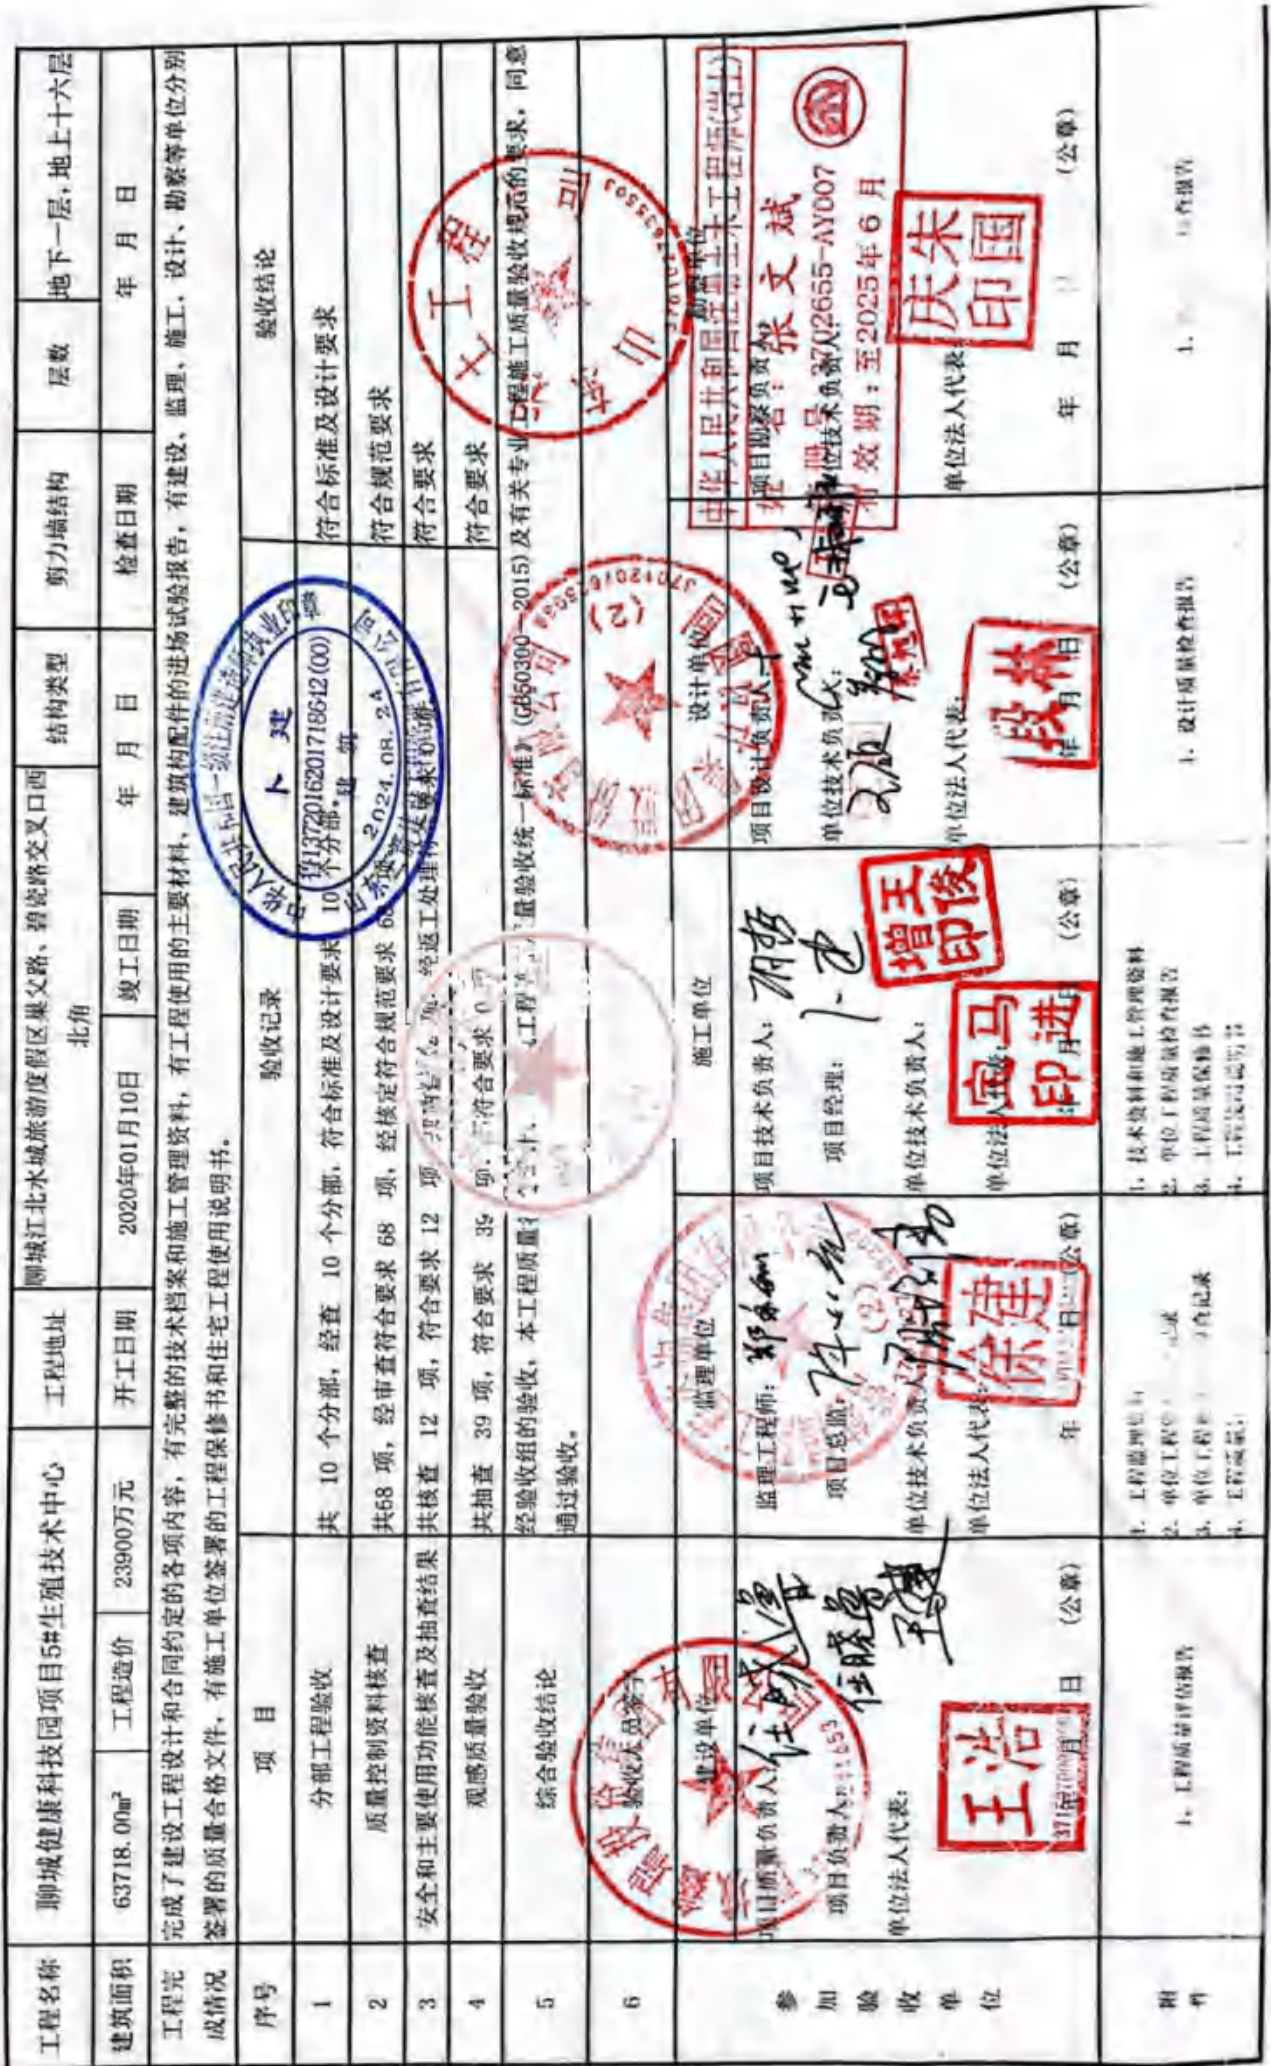 工程名称 聊城健康科技园项目5#生殖技术中心 工程地址 聊城江北水城旅游度假区巢父路、碧瓷路交叉口西北角 结构类型 剪力墙结构 层数 地下一层,地上十六层
建筑面积 63718.00m² 工程造价 23900万元 开工日期 2020年01月10日 竣工日期 年 月 日 检查日期 年 月 日
工程完成情况
完成了建设工程设计和合同约定的各项内容，有完整的技术档案和施工管理资料，有工程使用的主要材料、建筑构配件的进场试验报告，有建设、监理、施工、设计、勘察等单位分别
签署的质量合格文件，有施工单位签署的工程保修书和住宅工程使用说明书。
序号 项 目 验收记录 验收结论
1 分部工程验收 共 10 个分部，经查 10 个分部，符合标准及设计要求 10 个分部。 符合标准及设计要求
2 质量控制资料核查 共68 项，经审查符合要求 68 项，经核定符合规范要求 68 项 符合规范要求
3 安全和主要使用功能核查及抽查结果 共核查 12 项，符合要求 12 项 经返工处理符合要求 0 项 符合要求
4 观感质量验收 共抽查 39 项，符合要求 39 项，不符合要求 0 项 符合要求
5 综合验收结论 经验收组的验收，本工程质量符 工程 量验收统一标准》(GB50300-2015)及有关专业工程施工质量验收规范的要求，同意
通过验收。
6 验收人员签字
参加验收单位
建设单位 监理单位 施工单位 设计单位 勘察单位
项目质量负责人
项目负责人
单位法人代表:
王浩
年 月 日 (公章)
监理工程师:
项目总监:
单位技术负责人
单位法人代表:
徐建
年 月 日 (公章)
项目技术负责人:
项目经理: 卜建
单位技术负责人:
单位法人代表:
王俊增印
马进宝印
年 月 日 (公章)
项目设计负责人:
单位技术负责人:
单位法人代表:
段林
年 月 日 (公章)
项目勘察负责人
单位技术负责人:
单位法人代表:
朱国庆印
年 月 日 (公章)
中华人民共和国一级注册建造师执业印章
卜 建
鲁1372016201718642(00)
建 筑
2024.08.24
中华人民共和国注册土木工程师(岩土)
姓 名: 张 文 斌
注册号: 3702655-AY007
有效期: 至2025年6月
附件
1. 工程质量评估报告
1. 工程监理
2. 单位工程
3. 单位工程 查记录
4. 工程质量
1. 技术资料和施工管理资料
2. 单位工程质量检查报告
3. 工程质量保修书
4. 工程使用说明书
1. 设计质量检查报告
1. 检查报告